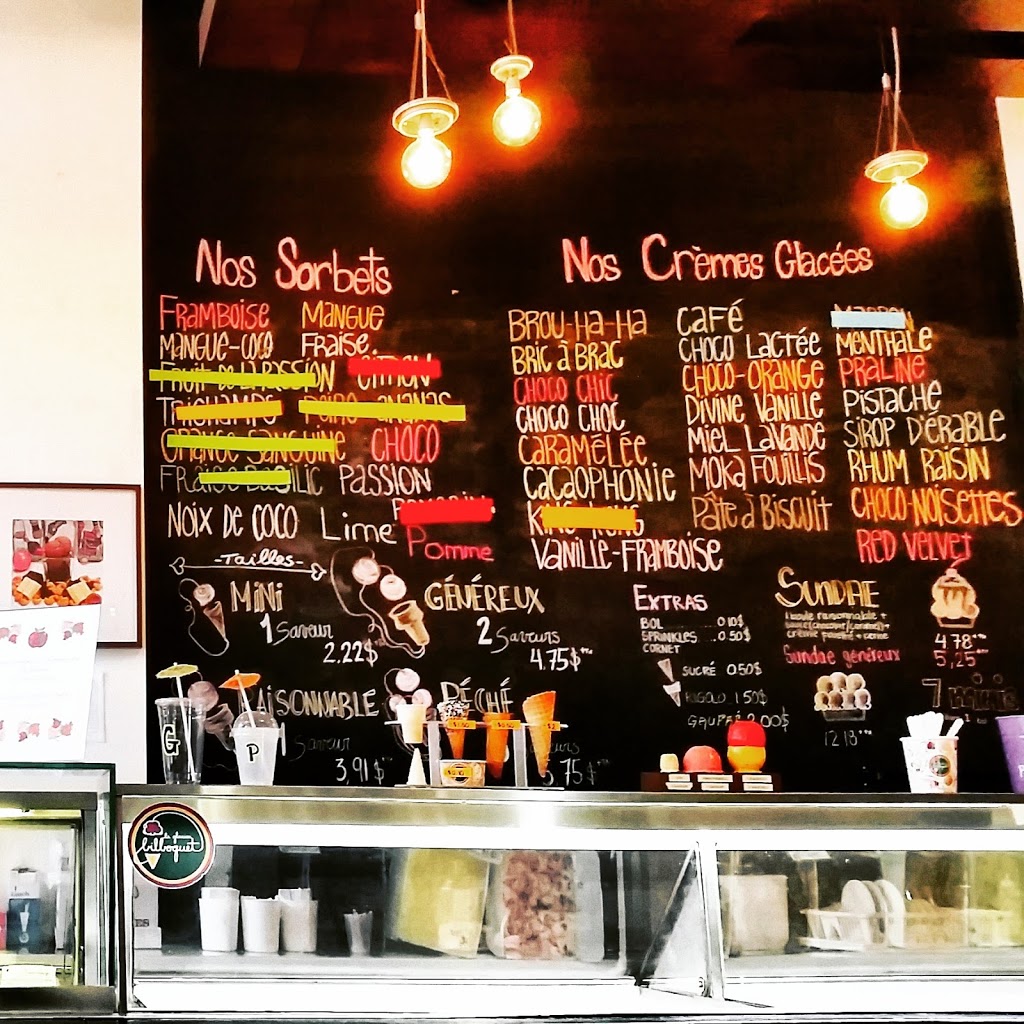 Nos Sorbets
Framboise Mangue
Mangue-coco Fraise
Fruit de la Passion Citron
Trichamps Poire-Ananas
Orange Sanguine Choco
Fraise Basilic Passion
Noix de coco Lime
Pomme
Nos Crèmes Glacées
Brou-ha-ha
Bric à Brac
Choco Chic
Choco Choc
Caramélée
Cacaophonie
King-Kong
Vanille-Framboise
Café
Choco Lactée
Choco-Orange
Divine Vanille
Miel Lavande
Moka Fouillis
Pâte à Biscuit
Menthale
Praline
Pistache
Sirop d'érable
Rhum Raisin
Choco-Noisettes
Red Velvet
-Tailles-
Mini
1 Saveur
2.22$
Généreux
2 Saveurs
4.75$
aisonnable
Saveur
3,91$
Péché
5.75$
Extras
Bol ..... 0.10$
Sprinkles .... 0.50$
Cornet
Sucré 0.50$
Rigolo 1.50$
Gaufré 2.00$
Sundae
Sundae généreux
4.78
5,25
7 minis
12.18
G
P
bilboquet